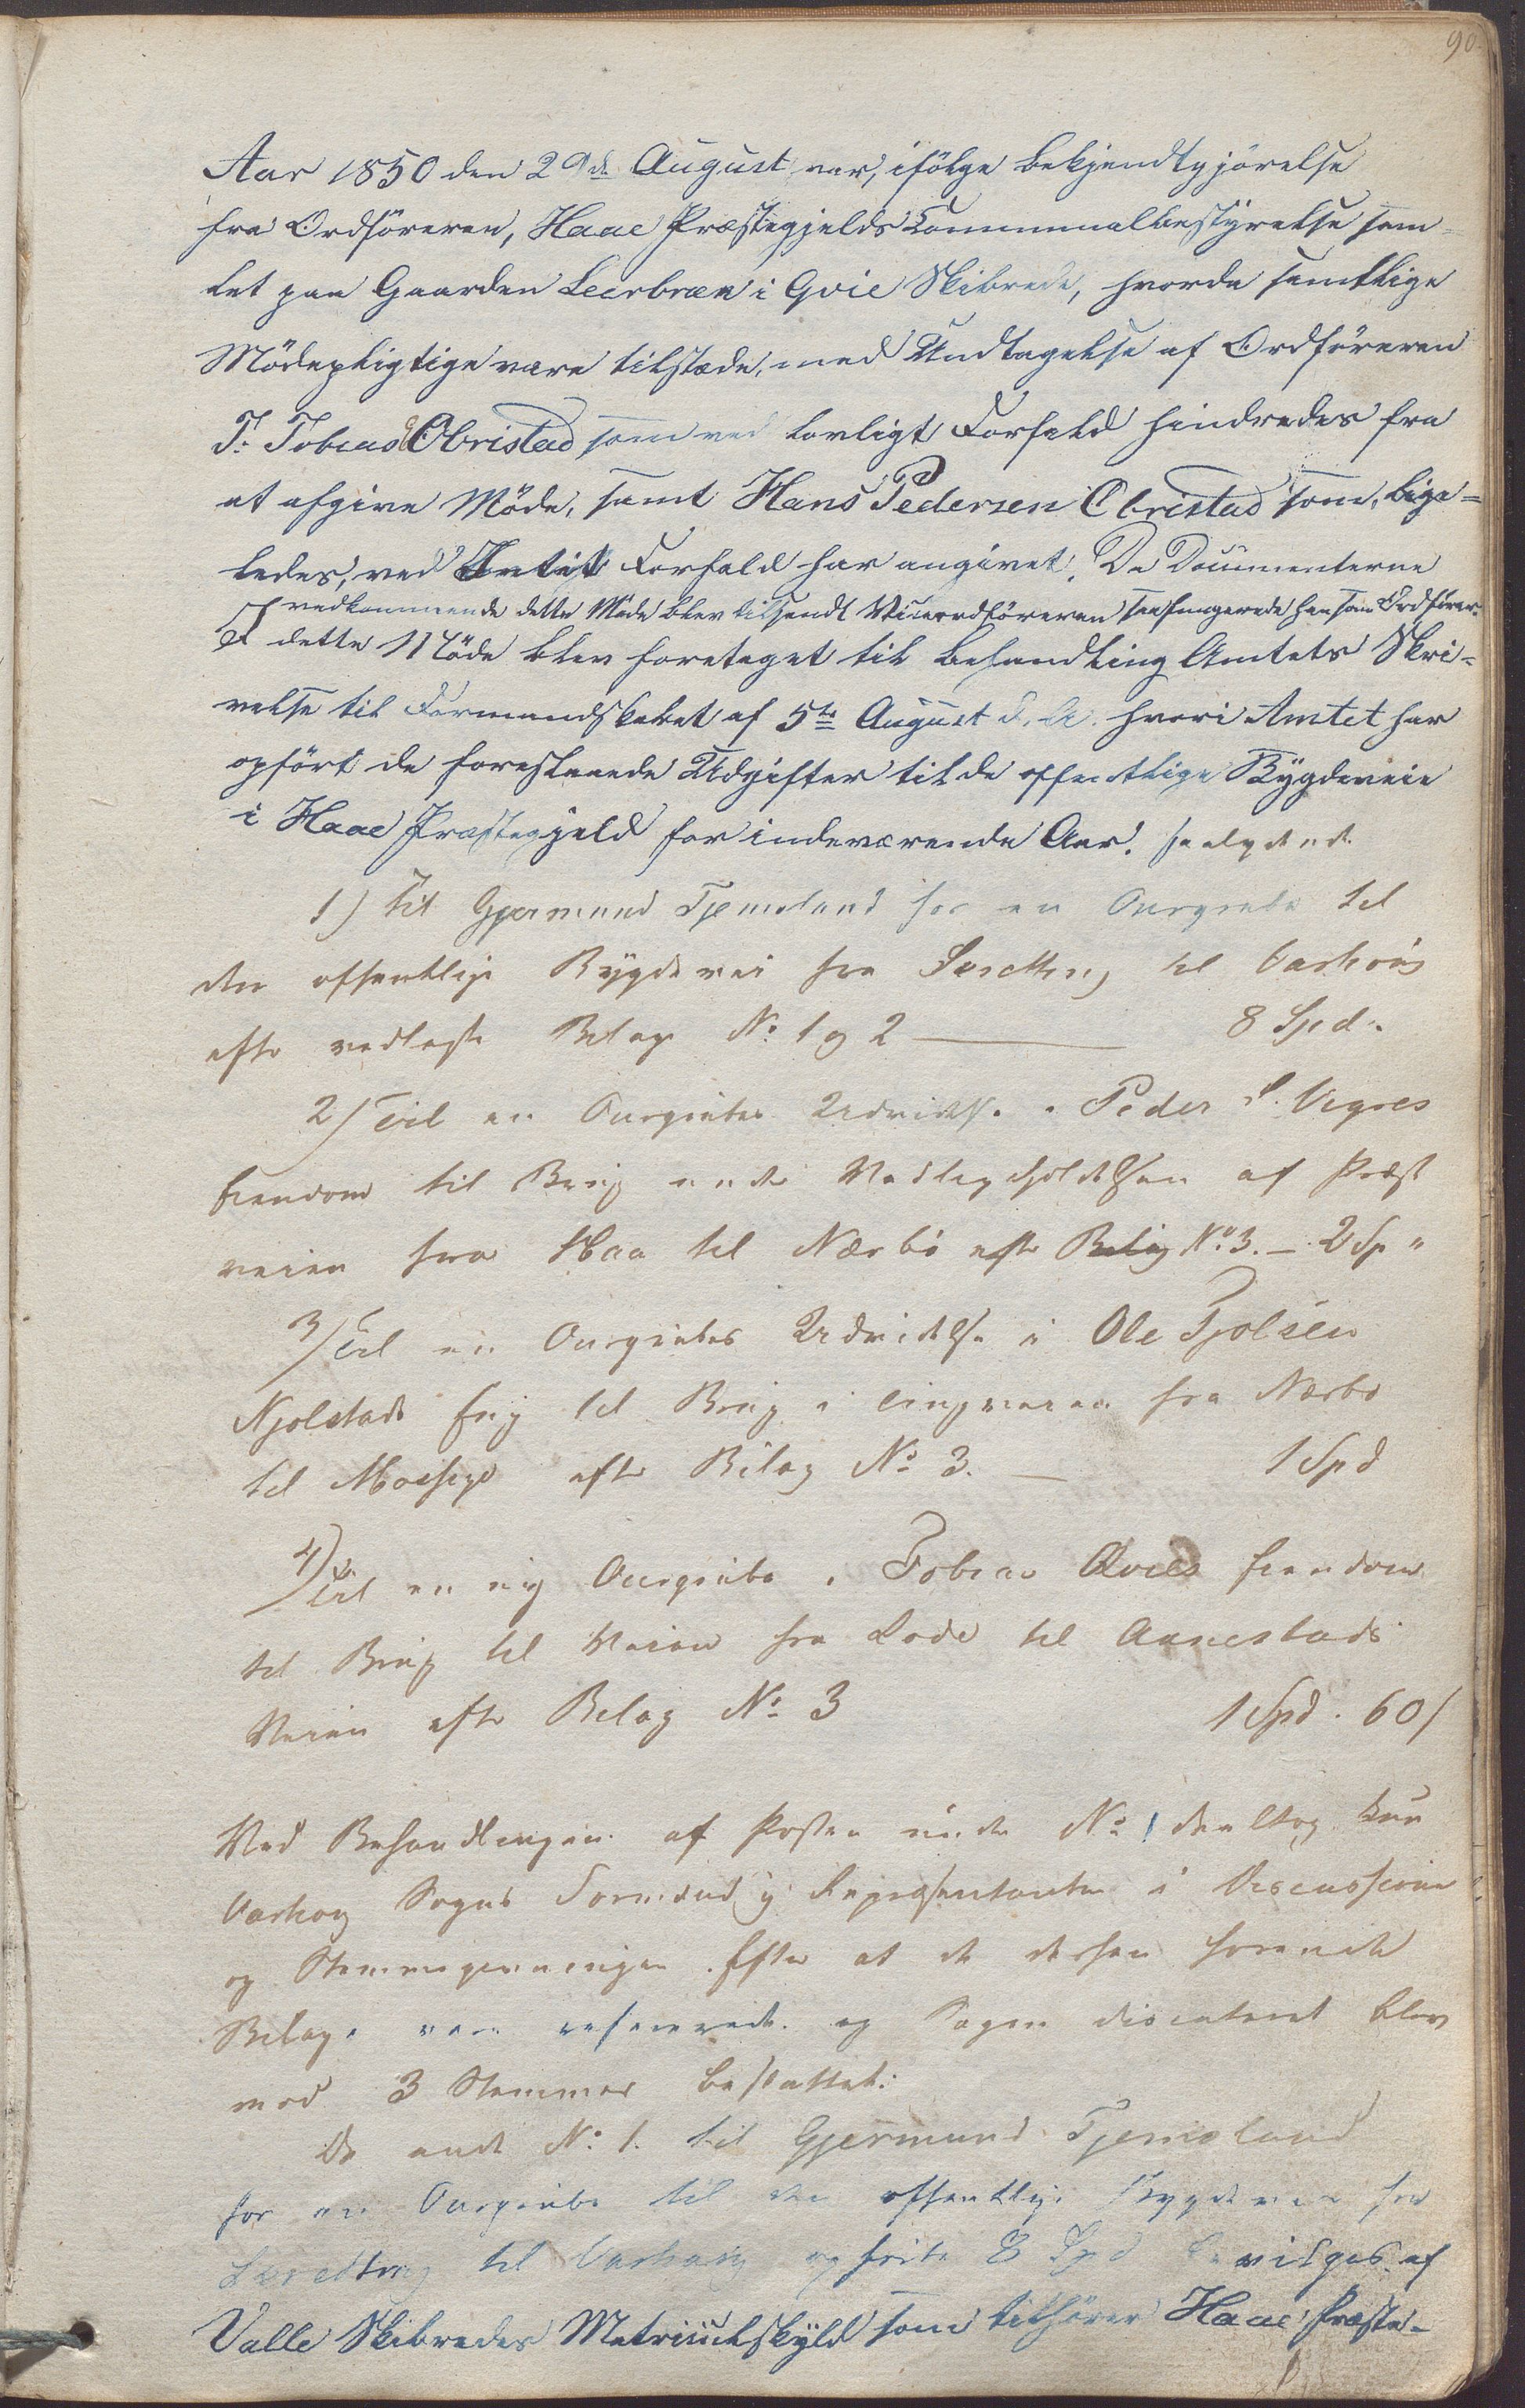 90.
Aar 1850 den 29de August var, ifölge bekjendtgjörelse
fra Ordföreren, Haae Præstegjelds Communalbestyrelse sam=
let paa Gaarden Leerbræk i Qvie Skibrede, hvorda samtlige
Mödepligtige vare tilstæde, med Undtagelse af Ordföreren
T. Tobias Obristad som ved lovligt Forfald hindredes fra
at afgive Möde, samt Hans Pedersen Obristad som, lige=
ledes, ved Forfald har angivet. Da Documenterne
vedkommende dette Möde blev tilsendt Viceordföreren saa fungerede han som Ordförer.
I dette Möde blev foretaget til behandling Amtets Skri=
velse til Formandskabet af 5te August d. A. hvori Amtet har
opført de foreslaaede Udgifter til de offentlige Bygdeveie
i Haae Præstegjeld for indeværende Aar. saalydende
1) til Gjermund Tjemsland for en Ourgrube til
den offentlige Bygdevei fra til Varhoug
efter vedlagte Bilage No 1 og 2 — 8 Spd.
2) Til en Ourgrubes Udvidelse i Peder Vigres
Eiendom til Brug under Vedligeholdelsen af Præst
veien fra Haa til Nærbö efter Bilag No 3. — 2 Sp "
3) Til en Ourgrubes Udvidelse i Ole Tjolsen
Njolstads Eng til Brug i veien fra Nærbö
til Motsige efter Bilag No 3. — 1 Spd
4) Til en ny Ourgrube i Tobias Qvies Eiendom
til Brug til Veien fra Lode til Aanestads
Veien efter Bilag No 3 1 Spd. 60 /
Ved Behandlingen af Posten under No 1 deeltog kun
Varhoug Sogns Formænd og Repræsentanter i Discussionen
og Stemmegivningen. Efter at de dersom
Bilage vare refererede og Sagen discuteret blev
med 3 Stemmer besluttet:
De under No 1. til Gjermund Tjemsland
for en Ourgrube til den offentlige Bygdevei fra
til Varhoug opførte 8 Spd bevilges af
Valle Skibredes Matriculskyld som tilhører Haae Præste-